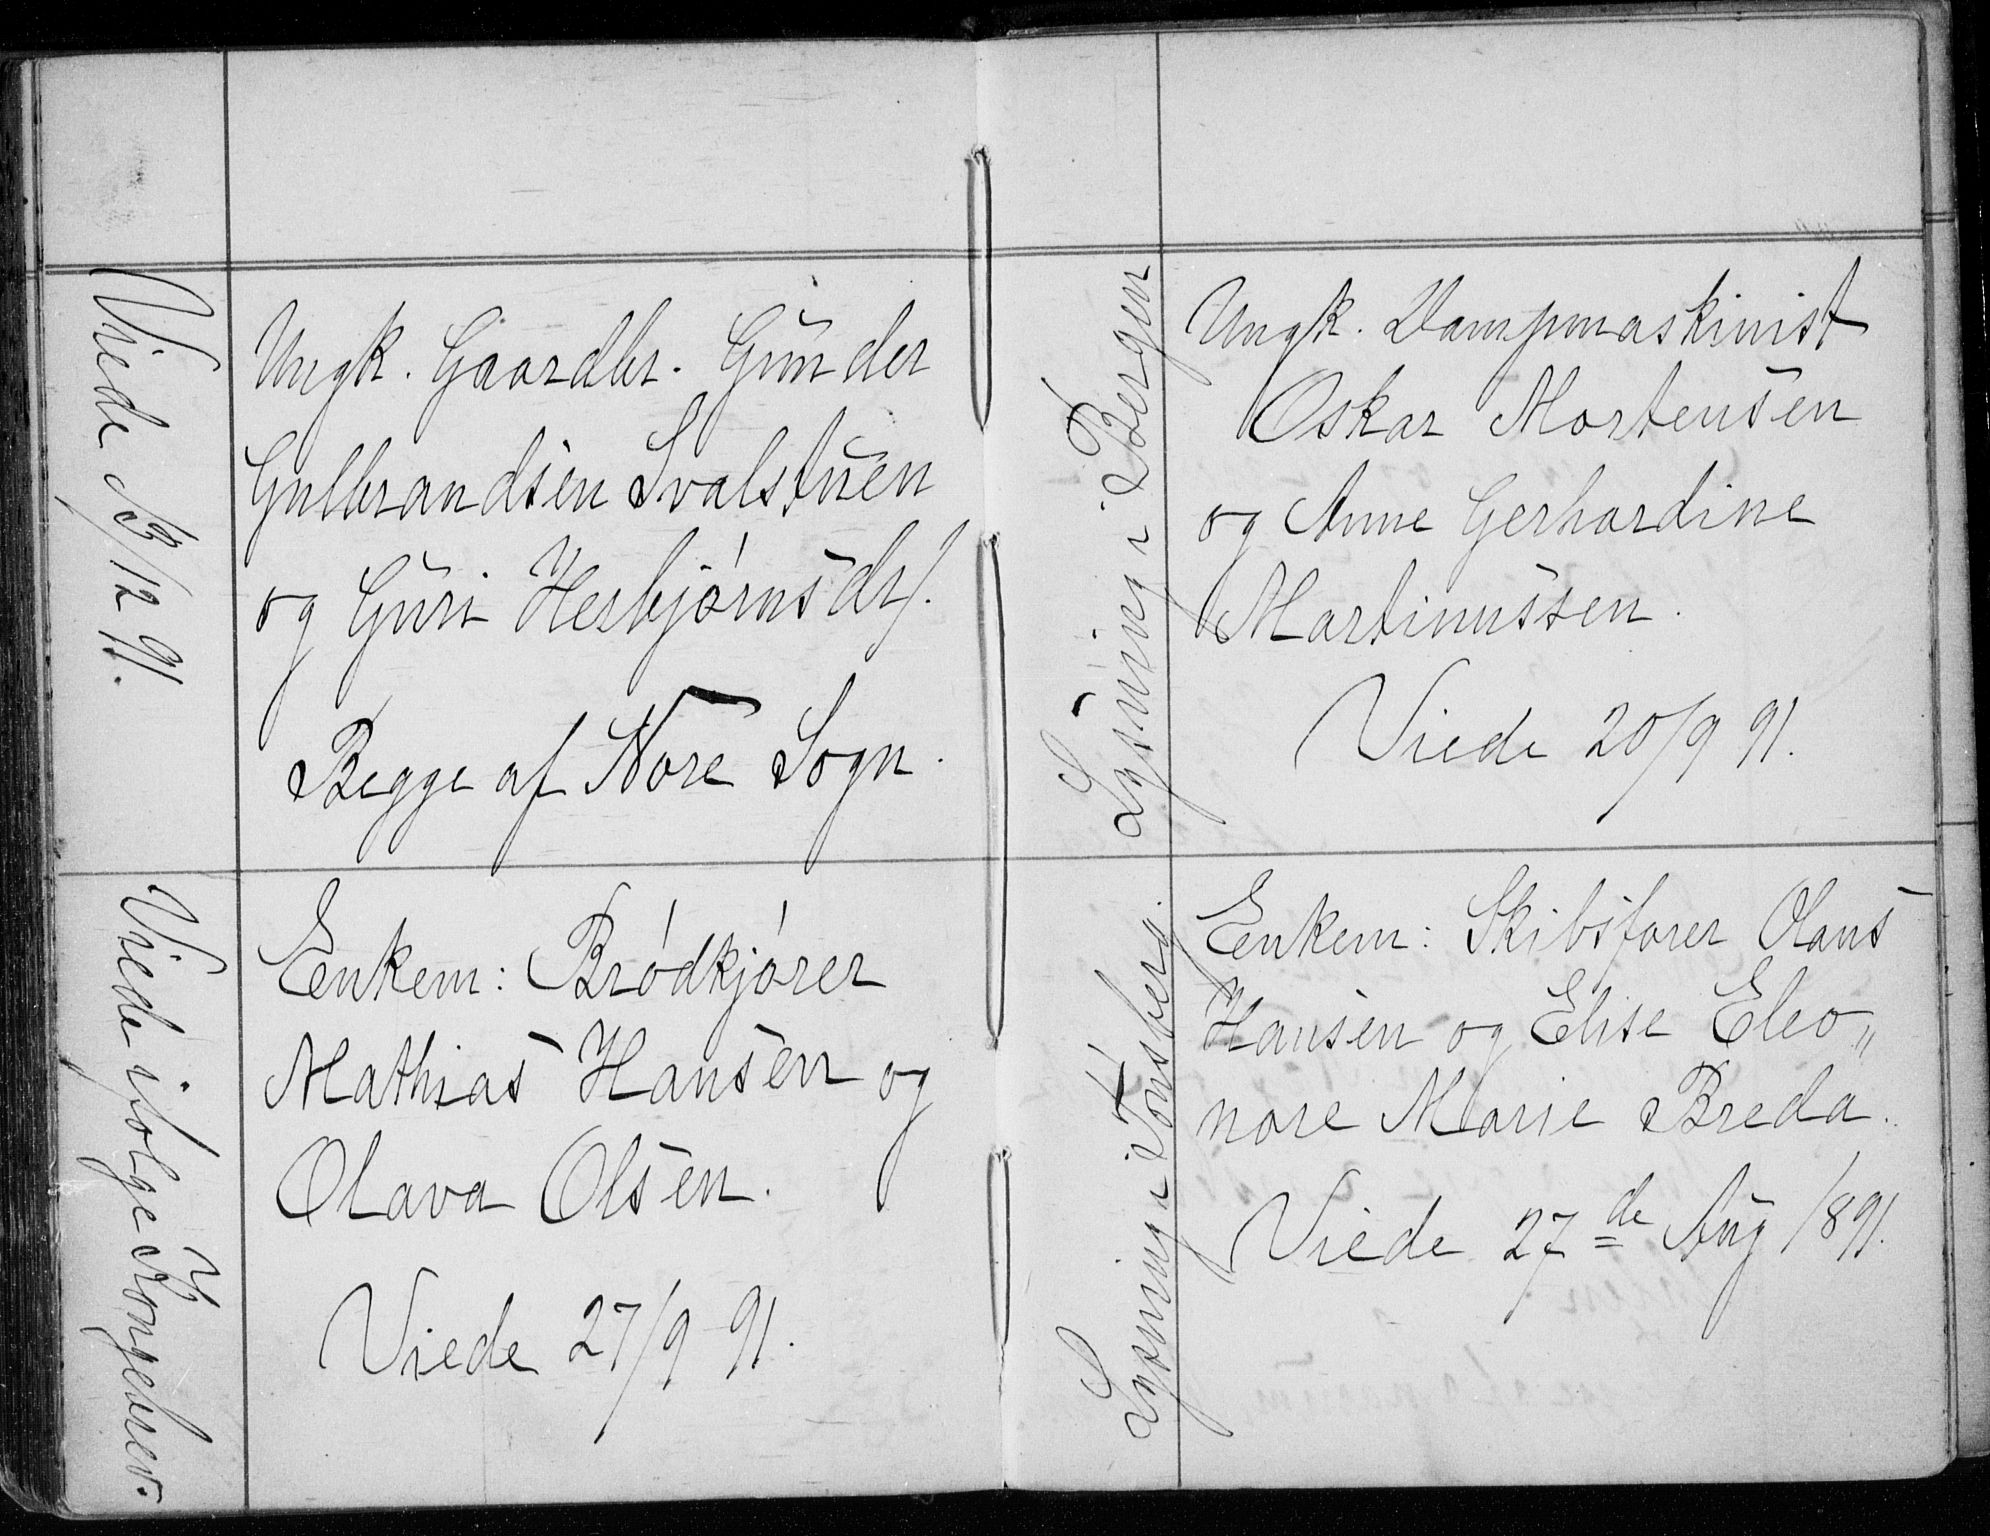 Viede 13/12 91.
Ungk. Gaardbr. Gunder
Gulbrandsen Svalstuen
og Guri Herbjørnsdr/.
Begge af Nore Sogn.
Viede ifølge Kongebrev.
Enkem: Brødkjører
Mathias Hansen og
Olava Olsen.
Viede 27/9 91.
Lysning i Bergen
Ungk. Dampmaskinist
Oskar Mortensen
og Anne Gerhardine
Martinussen.
Viede 20/9 91.
Lysning i Tønsberg.
Enkem: Skibsfører Olaus
Hansen og Elise Eleo„
nore Marie Breda.
Viede 27de Aug 1891.